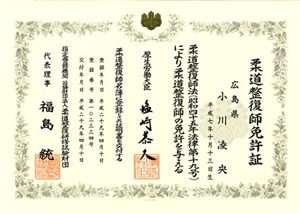 柔道整復師免許証
広島県
小川凌央
平成七年十月十三日生
柔道整復師法(昭和四十五年法律第十九号)
により柔道整復師の免許を与える
厚生労働大臣
塩崎恭久
柔道整復師名簿に登録したことを証明する
登録年月日 平成二十九年四月十日
登録番号
交付年月日 平成二十九年四月十日
指定登録機関 公益財団法人柔道整復研修試験財団
代表理事 福島統